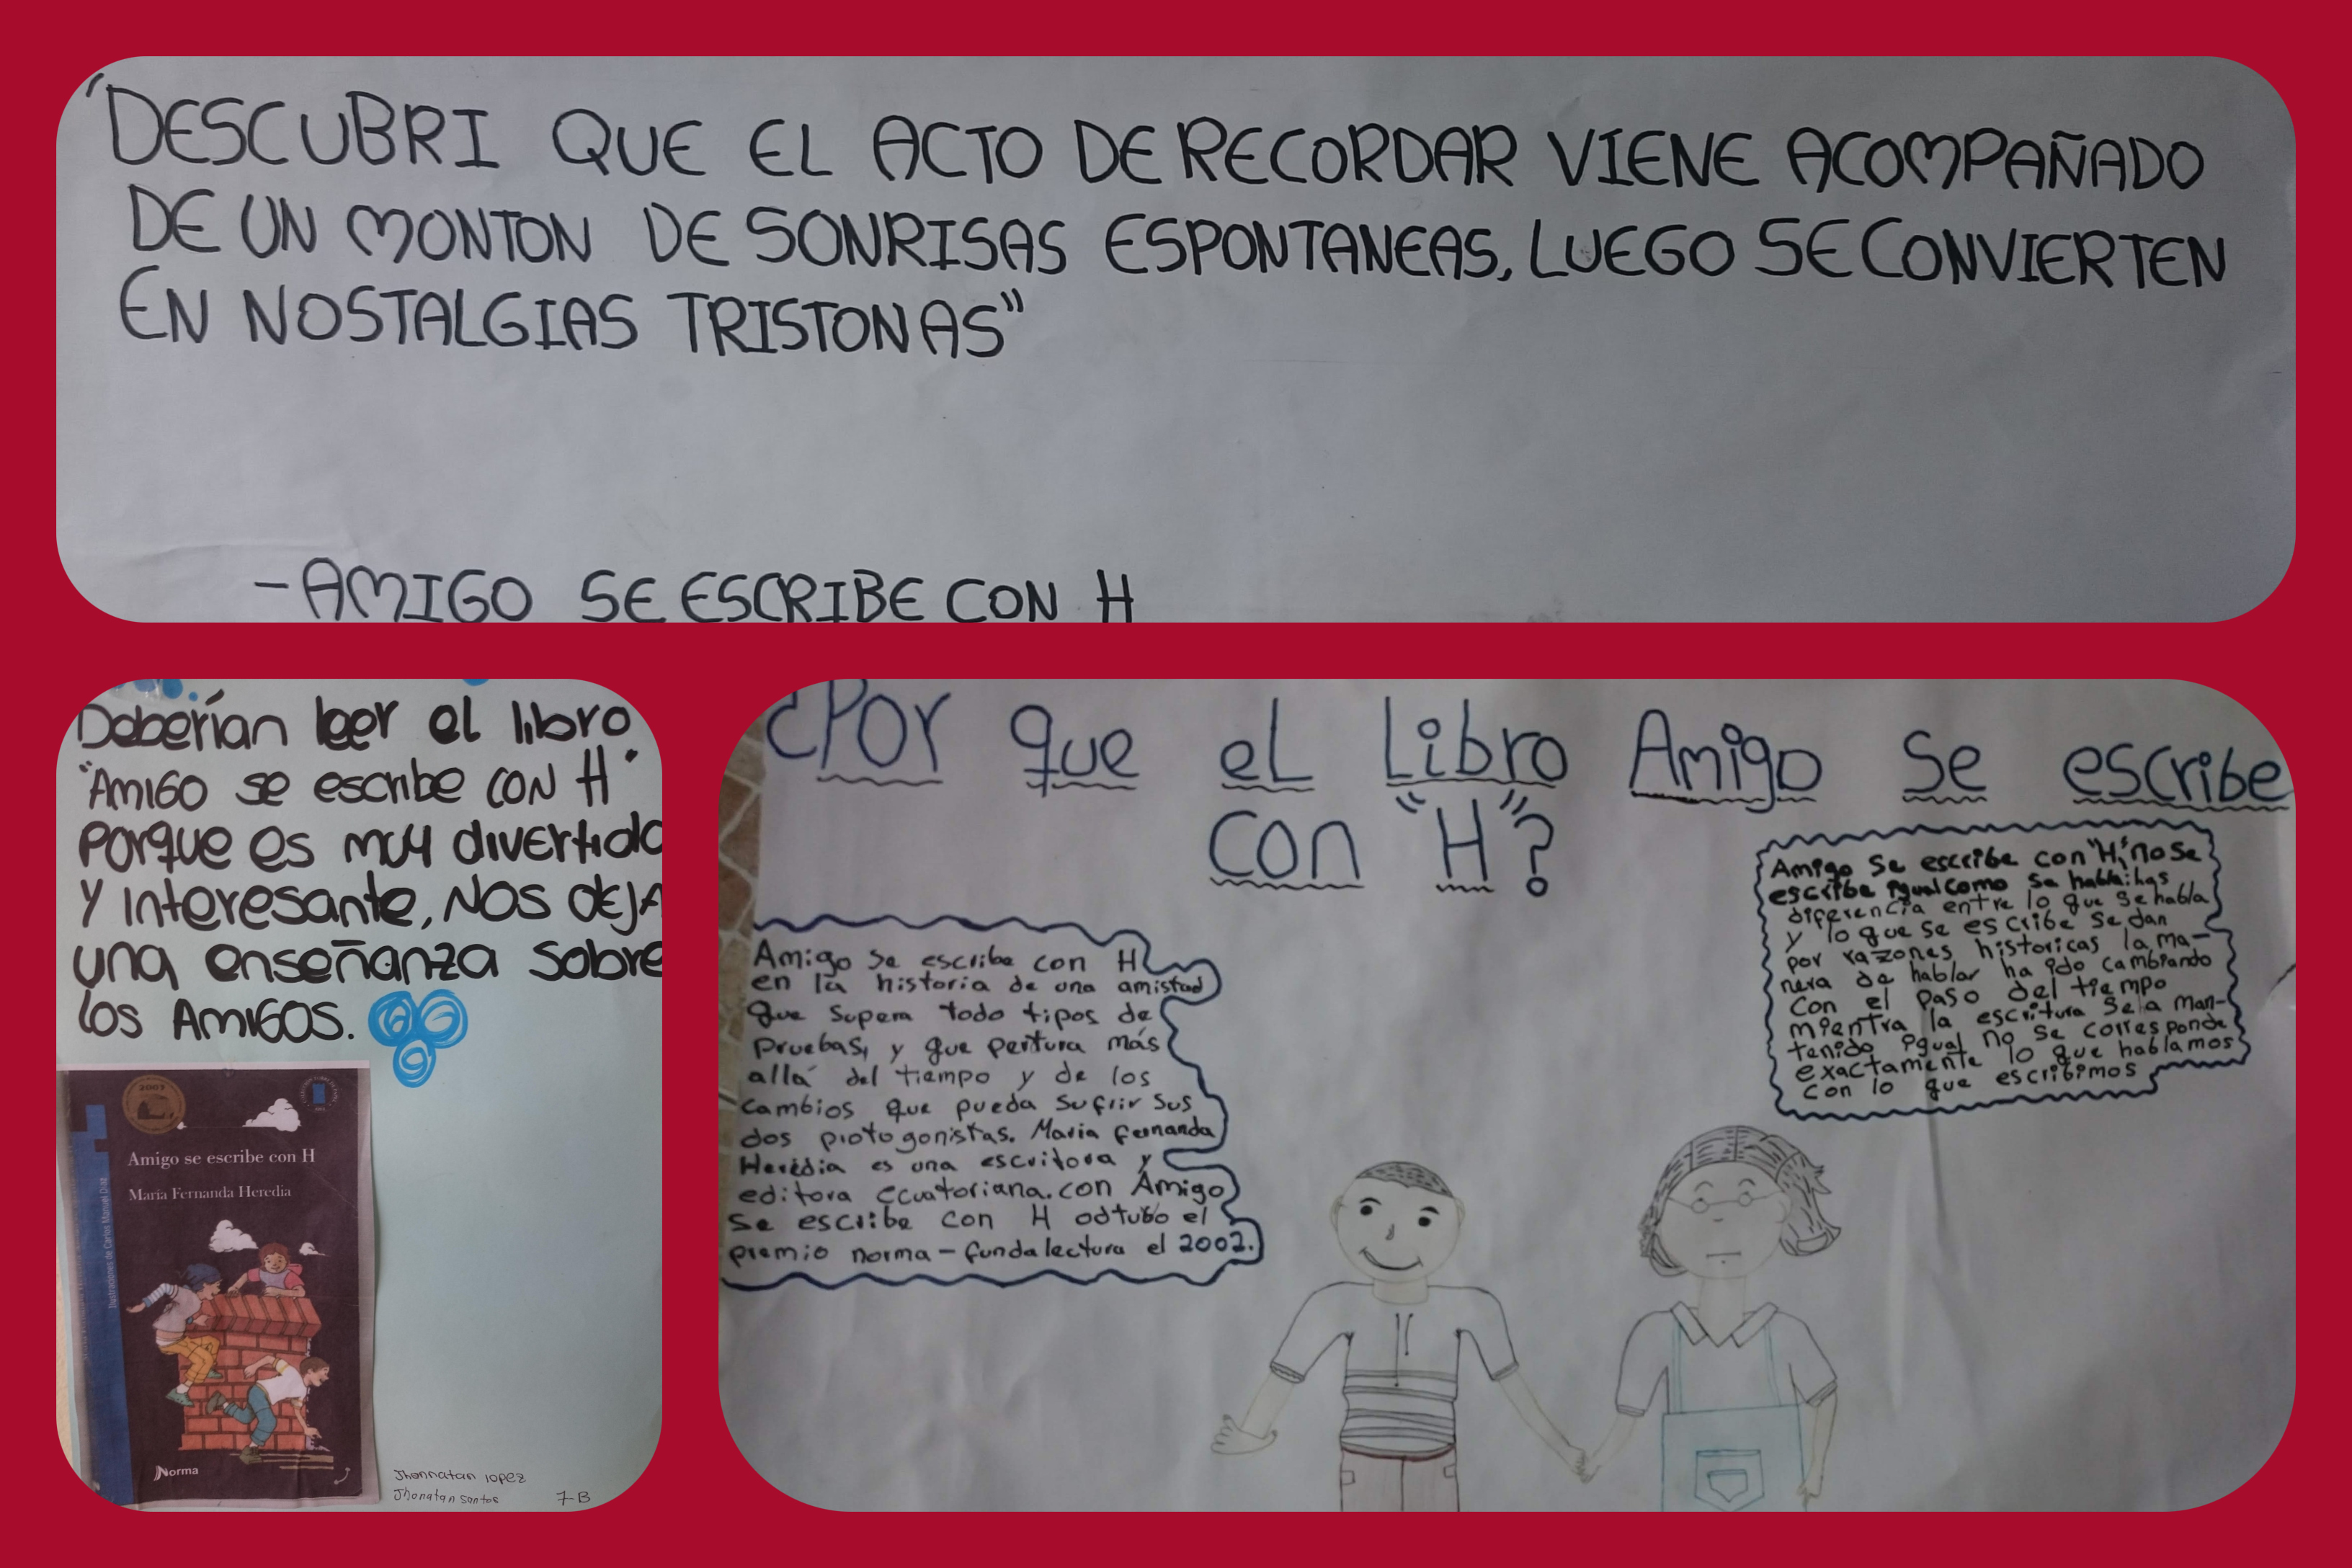 "DESCUBRI QUE EL ACTO DE RECORDAR VIENE ACOMPAÑADO
DE UN MONTON DE SONRISAS ESPONTANEAS, LUEGO SE CONVIERTEN
EN NOSTALGIAS TRISTONAS"
-AMIGO SE ESCRIBE CON H
Deberían leer el libro
"AMIGO se escribe CON H"
Porque es muy divertido
Y interesante, NOS DEJA
una enseñanza sobre
los AMIGOS.
2003
Amigo se escribe con H
María Fernanda Heredia
Ilustraciones de Carlos Manuel Díaz
Norma
Jhonnatan lopez
Jhonatan santos 7-B
¿Por que el Libro Amigo se escribe
con "H"?
Amigo se escribe con H
en la historia de una amistad
que supera todo tipos de
pruebas, y que pertura más
allá del tiempo y de los
cambios que pueda sufrir sus
dos protogonistas. Maria fernanda
Heredia es una escritora y
editora ecuatoriana. con Amigo
se escribe con H odtubo el
premio norma-fundalectura el 2002.
Amigo Se escribe con "H", no se
escribe igual como se habla: has
diferencia entre lo que se habla
y lo que se escribe se dan
por razones historicas la ma-
nera de hablar ha ido cambiando
con el paso del tiempo
mientra la escritura se a man-
tenido igual no se corresponde
exactamente lo que hablamos
con lo que escribimos